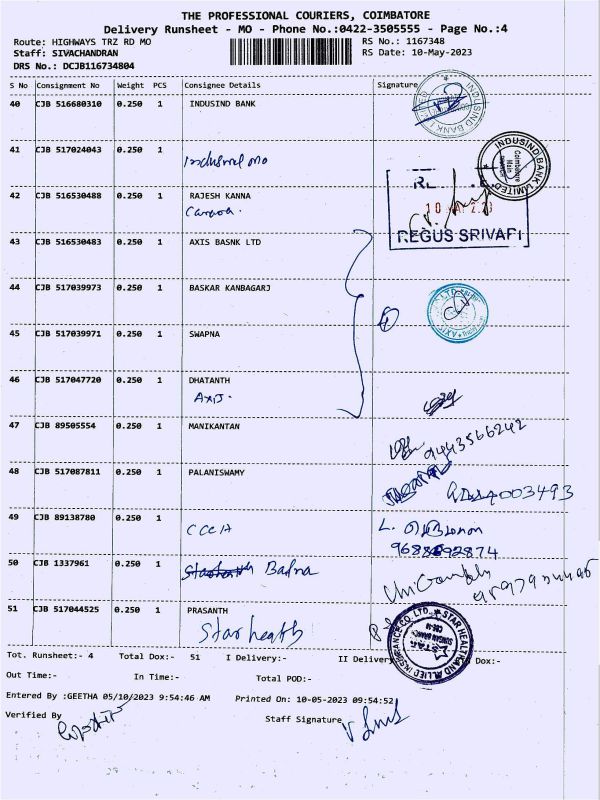 THE PROFESSIONAL COURIERS, COIMBATORE
Delivery Runsheet - MO - Phone No.:0422-3505555 - Page No.:4
Route: HIGHWAYS TRZ RD MO RS No.: 1167348
Staff: SIVACHANDRAN RS Date: 10-May-2023
DRS No.: DCJB116734804
S No Consignment No Weight PCS Consignee Details Signature
40 CJB 516680310 0.250 1 INDUSIND BANK
INDUSIND BANK
41 CJB 517024043 0.250 1 Indusind MO
INDUSIND BANK LIMITED
Coimbatore
Main
42 CJB 516530488 0.250 1 RAJESH KANNA
Canara.
REGUS SRIVARI
43 CJB 516530483 0.250 1 AXIS BASNK LTD
44 CJB 517039973 0.250 1 BASKAR KANBAGARJ
AXIS
45 CJB 517039971 0.250 1 SWAPNA
46 CJB 517047720 0.250 1 DHATANTH
Axis.
47 CJB 89505554 0.250 1 MANIKANTAN
9443566242
48 CJB 517087811 0.250 1 PALANISWAMY
49 CJB 89138780 0.250 1
50 CJB 1337961 0.250 1
51 CJB 517044525 0.250 1 PRASANTH
Star heath
STAR HEALTH AND ALLIED INSURANCE CO LTD.
STAR
Tot. Runsheet:- 4 Total Dox:- 51 I Delivery:- II Delivery Dox:-
Out Time:- In Time:- Total POD:-
Entered By :GEETHA 05/10/2023 9:54:46 AM Printed On: 10-05-2023 09:54:52
Verified By Staff Signature